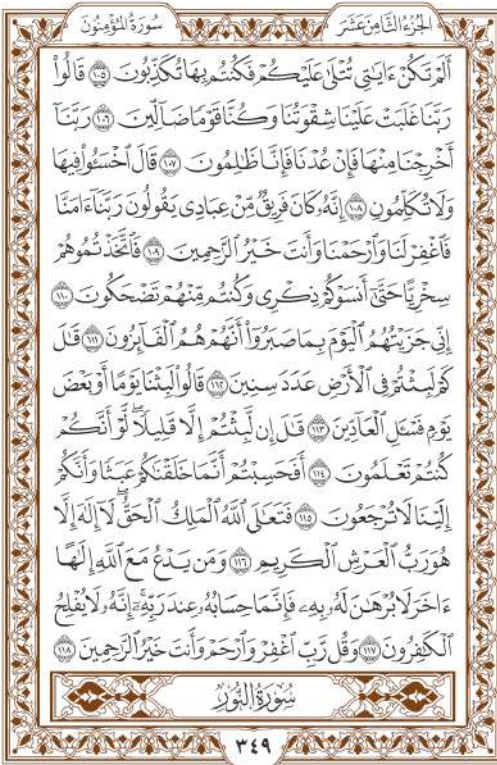 الجزء الثامن عشر
سورة المؤمنون
أَلَمْ تَكُنْ ءَايَٰتِي تُتْلَىٰ عَلَيْكُمْ فَكُنتُم بِهَا تُكَذِّبُونَ ١٠٥ قَالُوا۟
رَبَّنَا غَلَبَتْ عَلَيْنَا شِقْوَتُنَا وَكُنَّا قَوْمًا ضَآلِّينَ ١٠٦ رَبَّنَآ
أَخْرِجْنَا مِنْهَا فَإِنْ عُدْنَا فَإِنَّا ظَٰلِمُونَ ١٠٧ قَالَ ٱخْسَـُٔوا۟ فِيهَا
وَلَا تُكَلِّمُونِ ١٠٨ إِنَّهُۥ كَانَ فَرِيقٌ مِّنْ عِبَادِي يَقُولُونَ رَبَّنَآ ءَامَنَّا
فَٱغْفِرْ لَنَا وَٱرْحَمْنَا وَأَنتَ خَيْرُ ٱلرَّٰحِمِينَ ١٠٩ فَٱتَّخَذْتُمُوهُمْ
سِخْرِيًّا حَتَّىٰٓ أَنسَوْكُمْ ذِكْرِي وَكُنتُم مِّنْهُمْ تَضْحَكُونَ ١١٠
إِنِّي جَزَيْتُهُمُ ٱلْيَوْمَ بِمَا صَبَرُوٓا۟ أَنَّهُمْ هُمُ ٱلْفَآئِزُونَ ١١١ قَٰلَ
كَمْ لَبِثْتُمْ فِي ٱلْأَرْضِ عَدَدَ سِنِينَ ١١٢ قَالُوا۟ لَبِثْنَا يَوْمًا أَوْ بَعْضَ
يَوْمٍ فَسْـَٔلِ ٱلْعَآدِّينَ ١١٣ قَٰلَ إِن لَّبِثْتُمْ إِلَّا قَلِيلًا ۖ لَّوْ أَنَّكُمْ
كُنتُمْ تَعْلَمُونَ ١١٤ أَفَحَسِبْتُمْ أَنَّمَا خَلَقْنَٰكُمْ عَبَثًا وَأَنَّكُمْ
إِلَيْنَا لَا تُرْجَعُونَ ١١٥ فَتَعَٰلَى ٱللَّهُ ٱلْمَلِكُ ٱلْحَقُّ ۖ لَآ إِلَٰهَ إِلَّا
هُوَ رَبُّ ٱلْعَرْشِ ٱلْكَرِيمِ ١١٦ وَمَن يَدْعُ مَعَ ٱللَّهِ إِلَٰهًا
ءَاخَرَ لَا بُرْهَٰنَ لَهُۥ بِهِۦ فَإِنَّمَا حِسَابُهُۥ عِندَ رَبِّهِۦٓ ۚ إِنَّهُۥ لَا يُفْلِحُ
ٱلْكَٰفِرُونَ ١١٧ وَقُل رَّبِّ ٱغْفِرْ وَٱرْحَمْ وَأَنتَ خَيْرُ ٱلرَّٰحِمِينَ ١١٨
سورة النور
٣٤٩